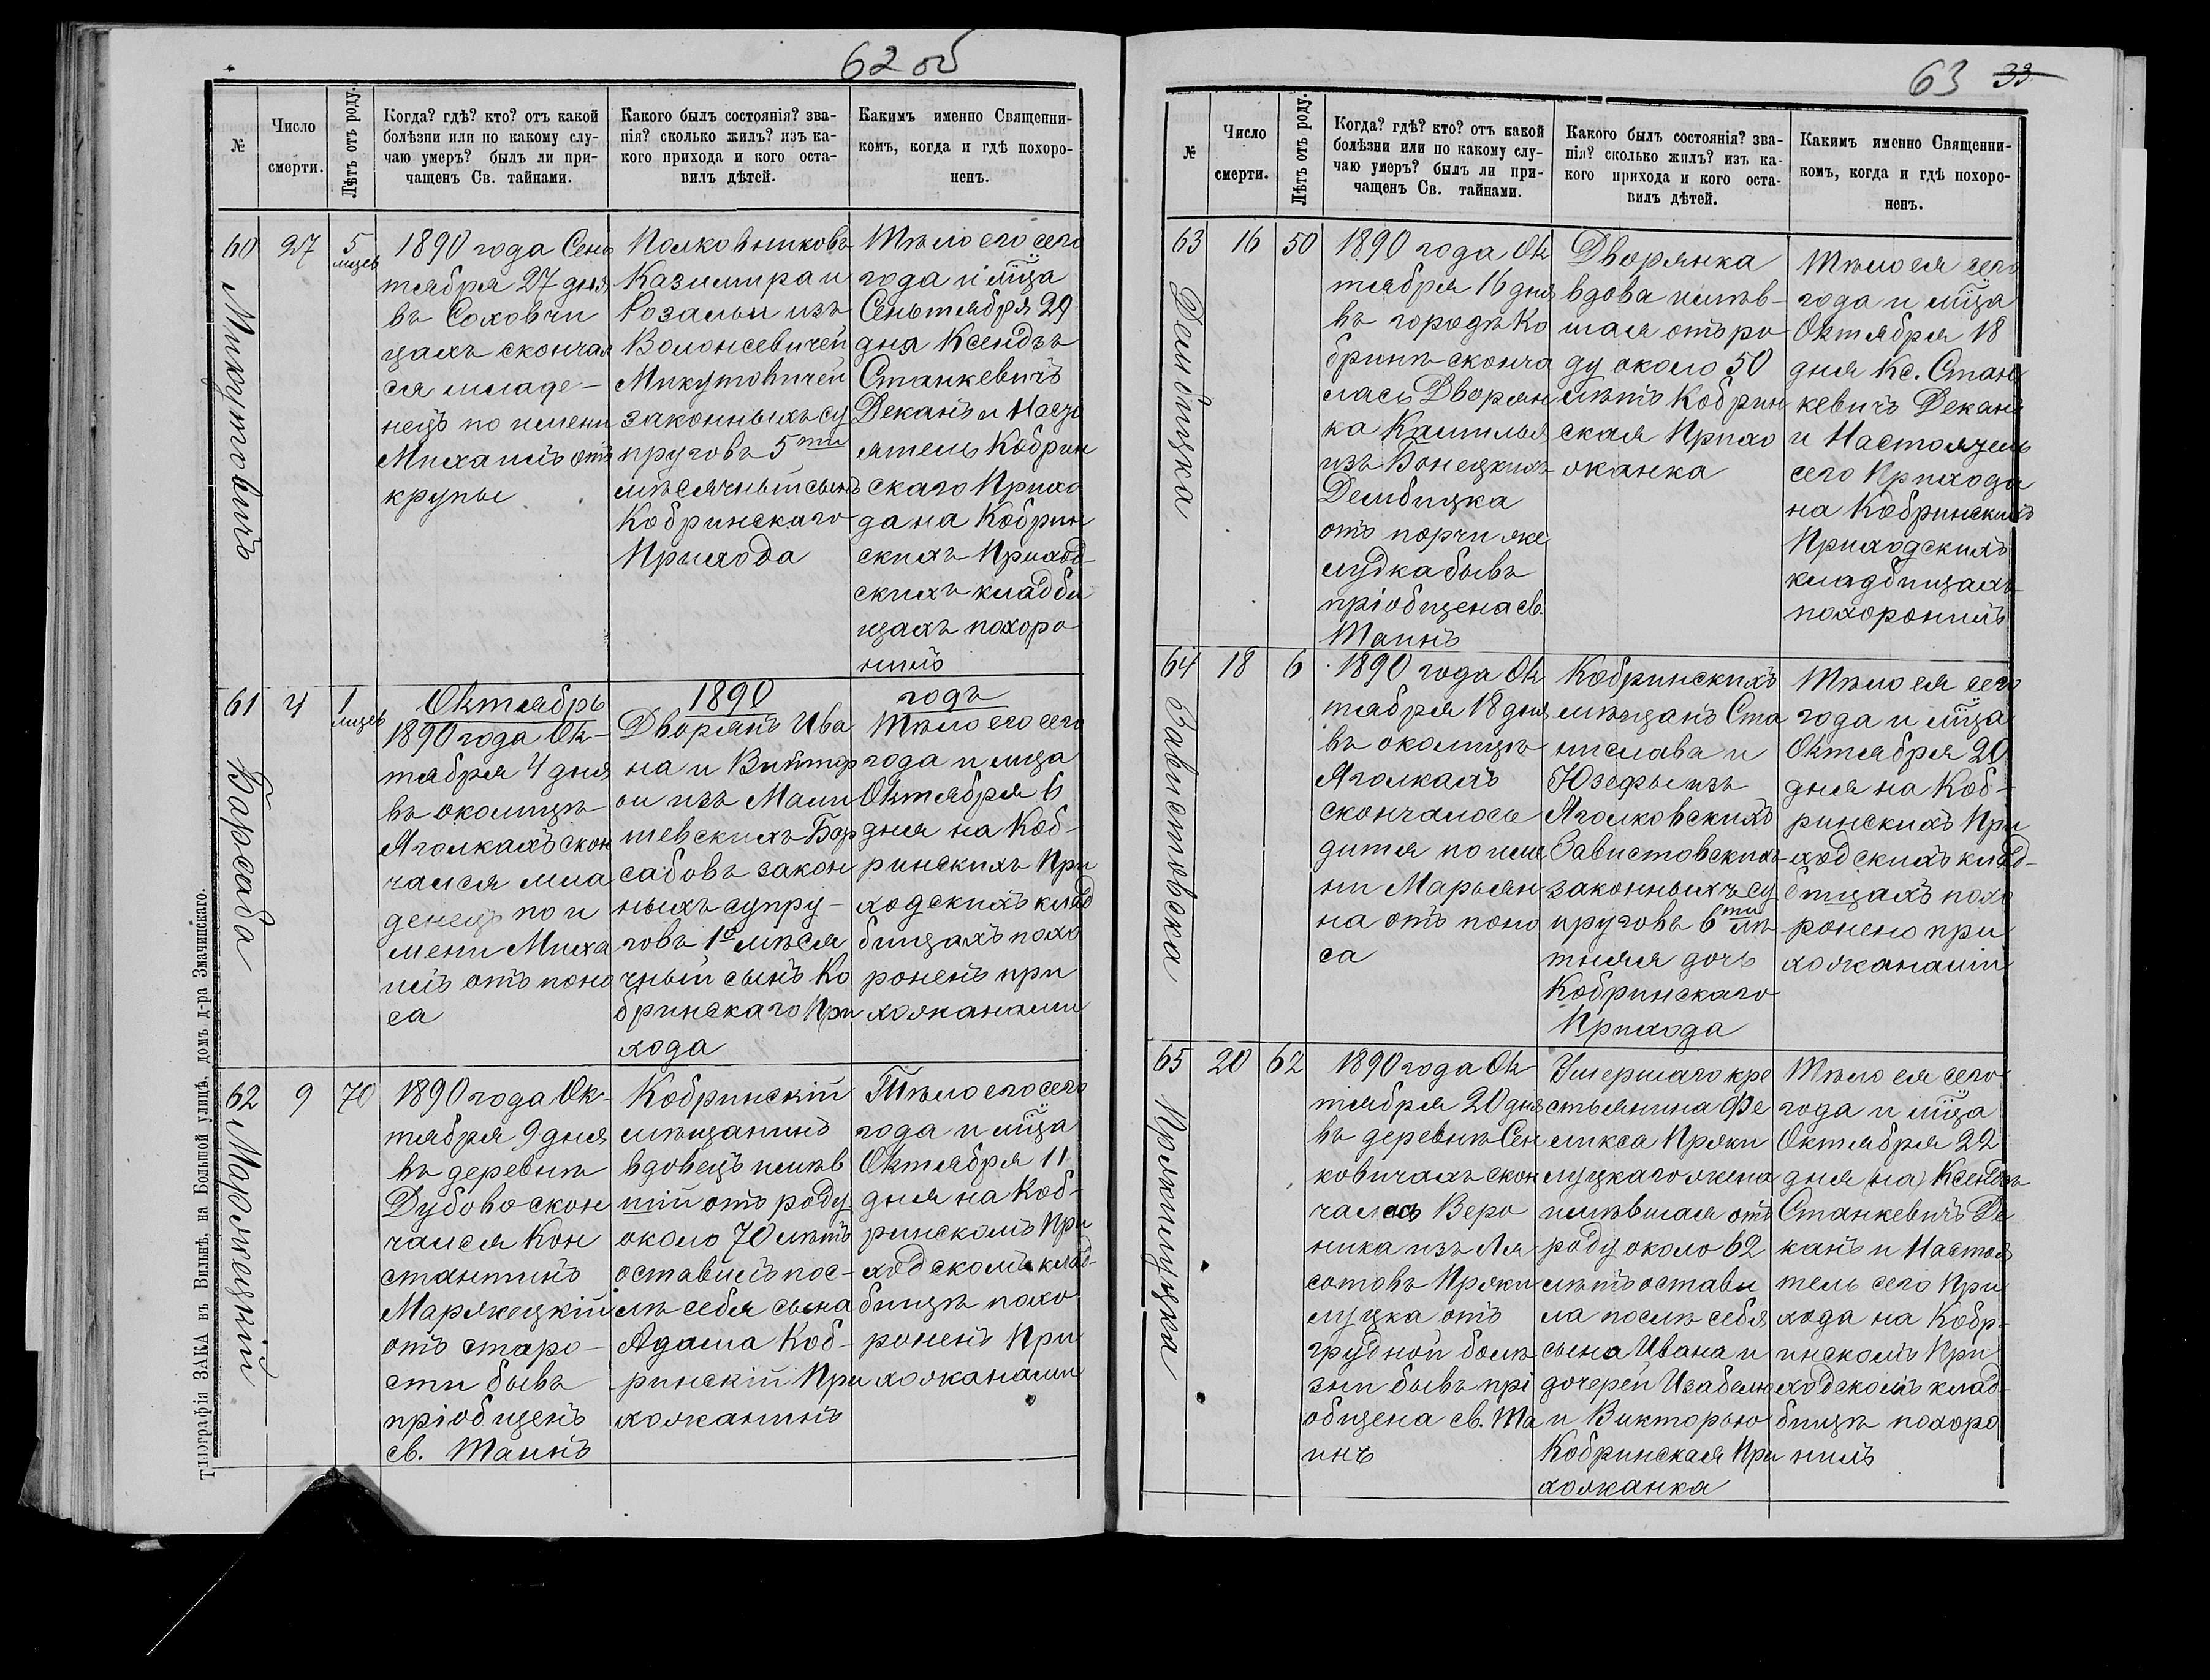 62 об
№
Число
смерти.
Лѣтъ отъ роду.
Когда? гдѣ? кто? отъ какой
болѣзни или по какому слу-
чаю умеръ? былъ ли при-
чащенъ Св. тайнами.
Какого былъ состоянія? зва-
нія? сколько жилъ? изъ ка-
кого прихода и кого оста-
вилъ дѣтей.
Какимъ именно Священни-
комъ, когда и гдѣ похоро-
ненъ.
60
Микутовичъ
27
5
мцев
1890 года Сень
тября 27 дня
въ Соловчи
цахъ скончал
ся младе-
нецъ по имени
Михаилъ отъ
крупы
Полковниковъ
Казимира и
Розальи изъ
Волонсевичей
Микутовичей
законныхъ су
пруговъ 5ти
мѣсячный сынъ
Кобринскаго
Прихода
Тѣло его сего
года и мца
Сеньтября 29
дня Ксендзъ
Станкевичъ
Деканъ и Насто
ятель Кобрин
скаго Прихо
да на Кобрин
скихъ Приход-
скихъ кладби
щахъ похоро
нилъ
Октябрь
1890
годъ
61
Барсаба
4
1
мцев
1890 года Ок-
тября 4 дня
въ околицѣ
Яголкахъ скон
чался мла
денецъ по и
мени Миха
илъ отъ поно
са
Дворянъ Ива
на и Виктор
ои изъ Мали
шевскихъ Бар
сабовъ закон
ныхъ супру-
говъ 1о мѣся
чный сынъ Ко
бринскаго При
хода
Тѣло его сего
года и мца
Октября 6
дня на Коб-
ринскихъ При
ходскихъ клад
бищахъ похо
роненъ при
хожанами
62
Маржецкій
9
70
1890 года Ок-
тября 9 дня
въ деревнѣ
Дубово скон
чался Кон
стантинъ
Маржецкій
отъ старо-
сти бывъ
пріобщенъ
св. Таинъ
Кобринскій
мѣщанинъ
вдовецъ имѣв
шій отъ роду
около 70 лѣтъ
оставилъ пос-
лѣ себя сына
Адама Коб-
ринскій При
хожанинъ
Тѣло его сего
года и мца
Октября 11
дня на Коб-
ринскомъ При
ходскомъ клад-
бищѣ похо
роненъ При
хожанами
Типографія ЗАКА въ Вильнѣ, на Большой улицѣ, домъ д-ра Змачинскаго.
63 33
№
Число
смерти.
Лѣтъ отъ роду.
Когда? гдѣ? кто? отъ какой
болѣзни или по какому слу-
чаю умеръ? былъ ли при-
чащенъ Св. тайнами.
Какого былъ состоянія? зва-
нія? сколько жилъ? изъ ка-
кого прихода и кого оста-
вилъ дѣтей.
Какимъ именно Священни-
комъ, когда и гдѣ похоро-
ненъ.
63
Дембицка
16
50
1890 года Ок
тября 16 дня
въ городѣ Ко
бринѣ сконча
лась Дворян
ка Камилья
изъ Бонецкихъ
Дембицка
отъ порчи же
лудка бывъ
пріобщена св.
Таинъ
Дворянка
вдова имѣв-
шая отъ ро
ду около 50
лѣтъ Кобрин
ская Прихо
жанка
Тѣло ея сего
года и мца
Октября 18
дня Кс. Стан
кевичъ Деканъ
и Настоятель
сего Прихода
на Кобринскихъ
Приходскихъ
кладбищахъ
похоронилъ
64
Завистовска
18
6
1890 года Ок
тября 18 дня
въ околицѣ
Яголкахъ
скончалось
дитя по име
ни Марьян
на отъ поно
са
Кобринскихъ
мѣщанъ Ста
нислава и
Юзефы изъ
Яголковскихъ
Завистовскихъ
законныхъ су
пруговъ 6ти лѣ
тняя дочь
Кобринскаго
Прихода
Тѣло ея сего
года и мца
Октября 20
дня на Коб-
ринскихъ При
ходскихъ клад-
бищахъ похо
ронено при
хожанами
65
Пржилуцка
20
62
1890 года Ок
тября 20 дня
въ деревнѣ Сен
ковичахъ скон
чалась Веро
ника изъ Ля
сотовъ Пржи
луцка отъ
грудной болѣ
зни бывъ прі
общена св. Та
инъ
Умершаго кре
стьянина Фе
ликса Пржи
луцкаго жена
имѣвшая отъ
роду около 62
лѣтъ остави
ла послѣ себя
сына Ивана и
дочерей Изабелю
и Викторью
Кобринская При
хожанка
Тѣло ея сего
года и мца
Октября 22
дня (на) Ксендзъ
Станкевичъ Де
канъ и Настоя
тель сего При
хода на Кобр-
инскомъ При
ходскомъ клад-
бищѣ похоро
нилъ